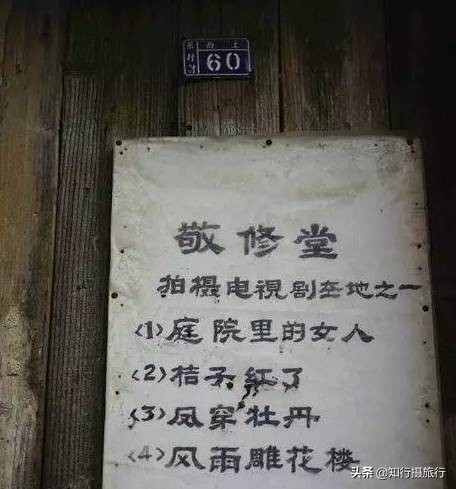 东村
西上
60
敬修堂
拍摄电視剧基地之一
(1)庭院里的女人
(2)桔子红了
(3)风穿牡丹
(4)风雨雕花楼
头条 @知行摄旅行